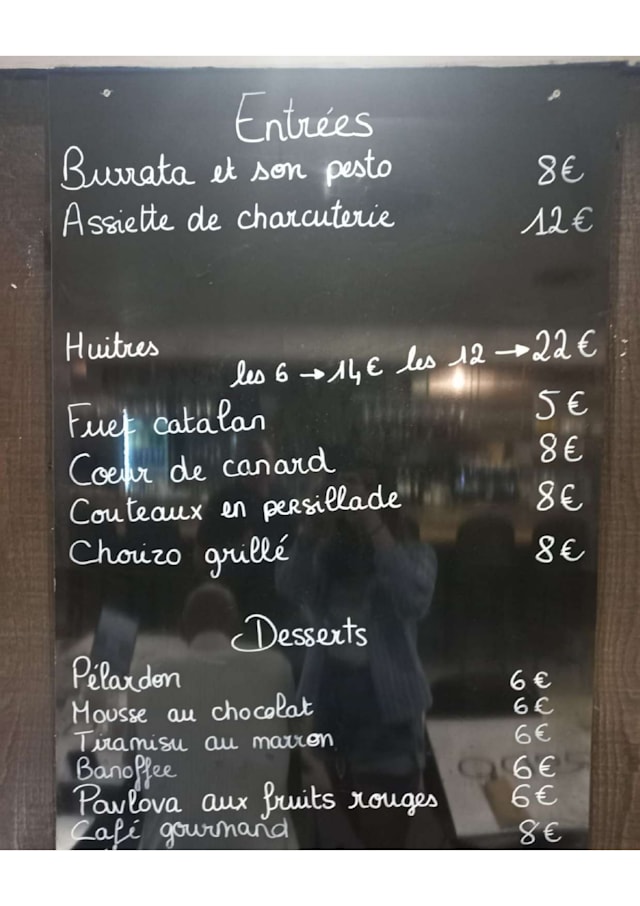 Entrées
Burrata et son pesto 8€
Assiette de charcuterie 12€
Huitres les 6 → 14€ les 12 → 22€
Fuet catalan 5€
Coeur de canard 8€
Couteaux en persillade 8€
Chorizo grillé 8€
Desserts
Pélardon 6€
Mousse au chocolat 6€
Tiramisu au marron 6€
Banoffee 6€
Pavlova aux fruits rouges 6€
Café gourmand 8€